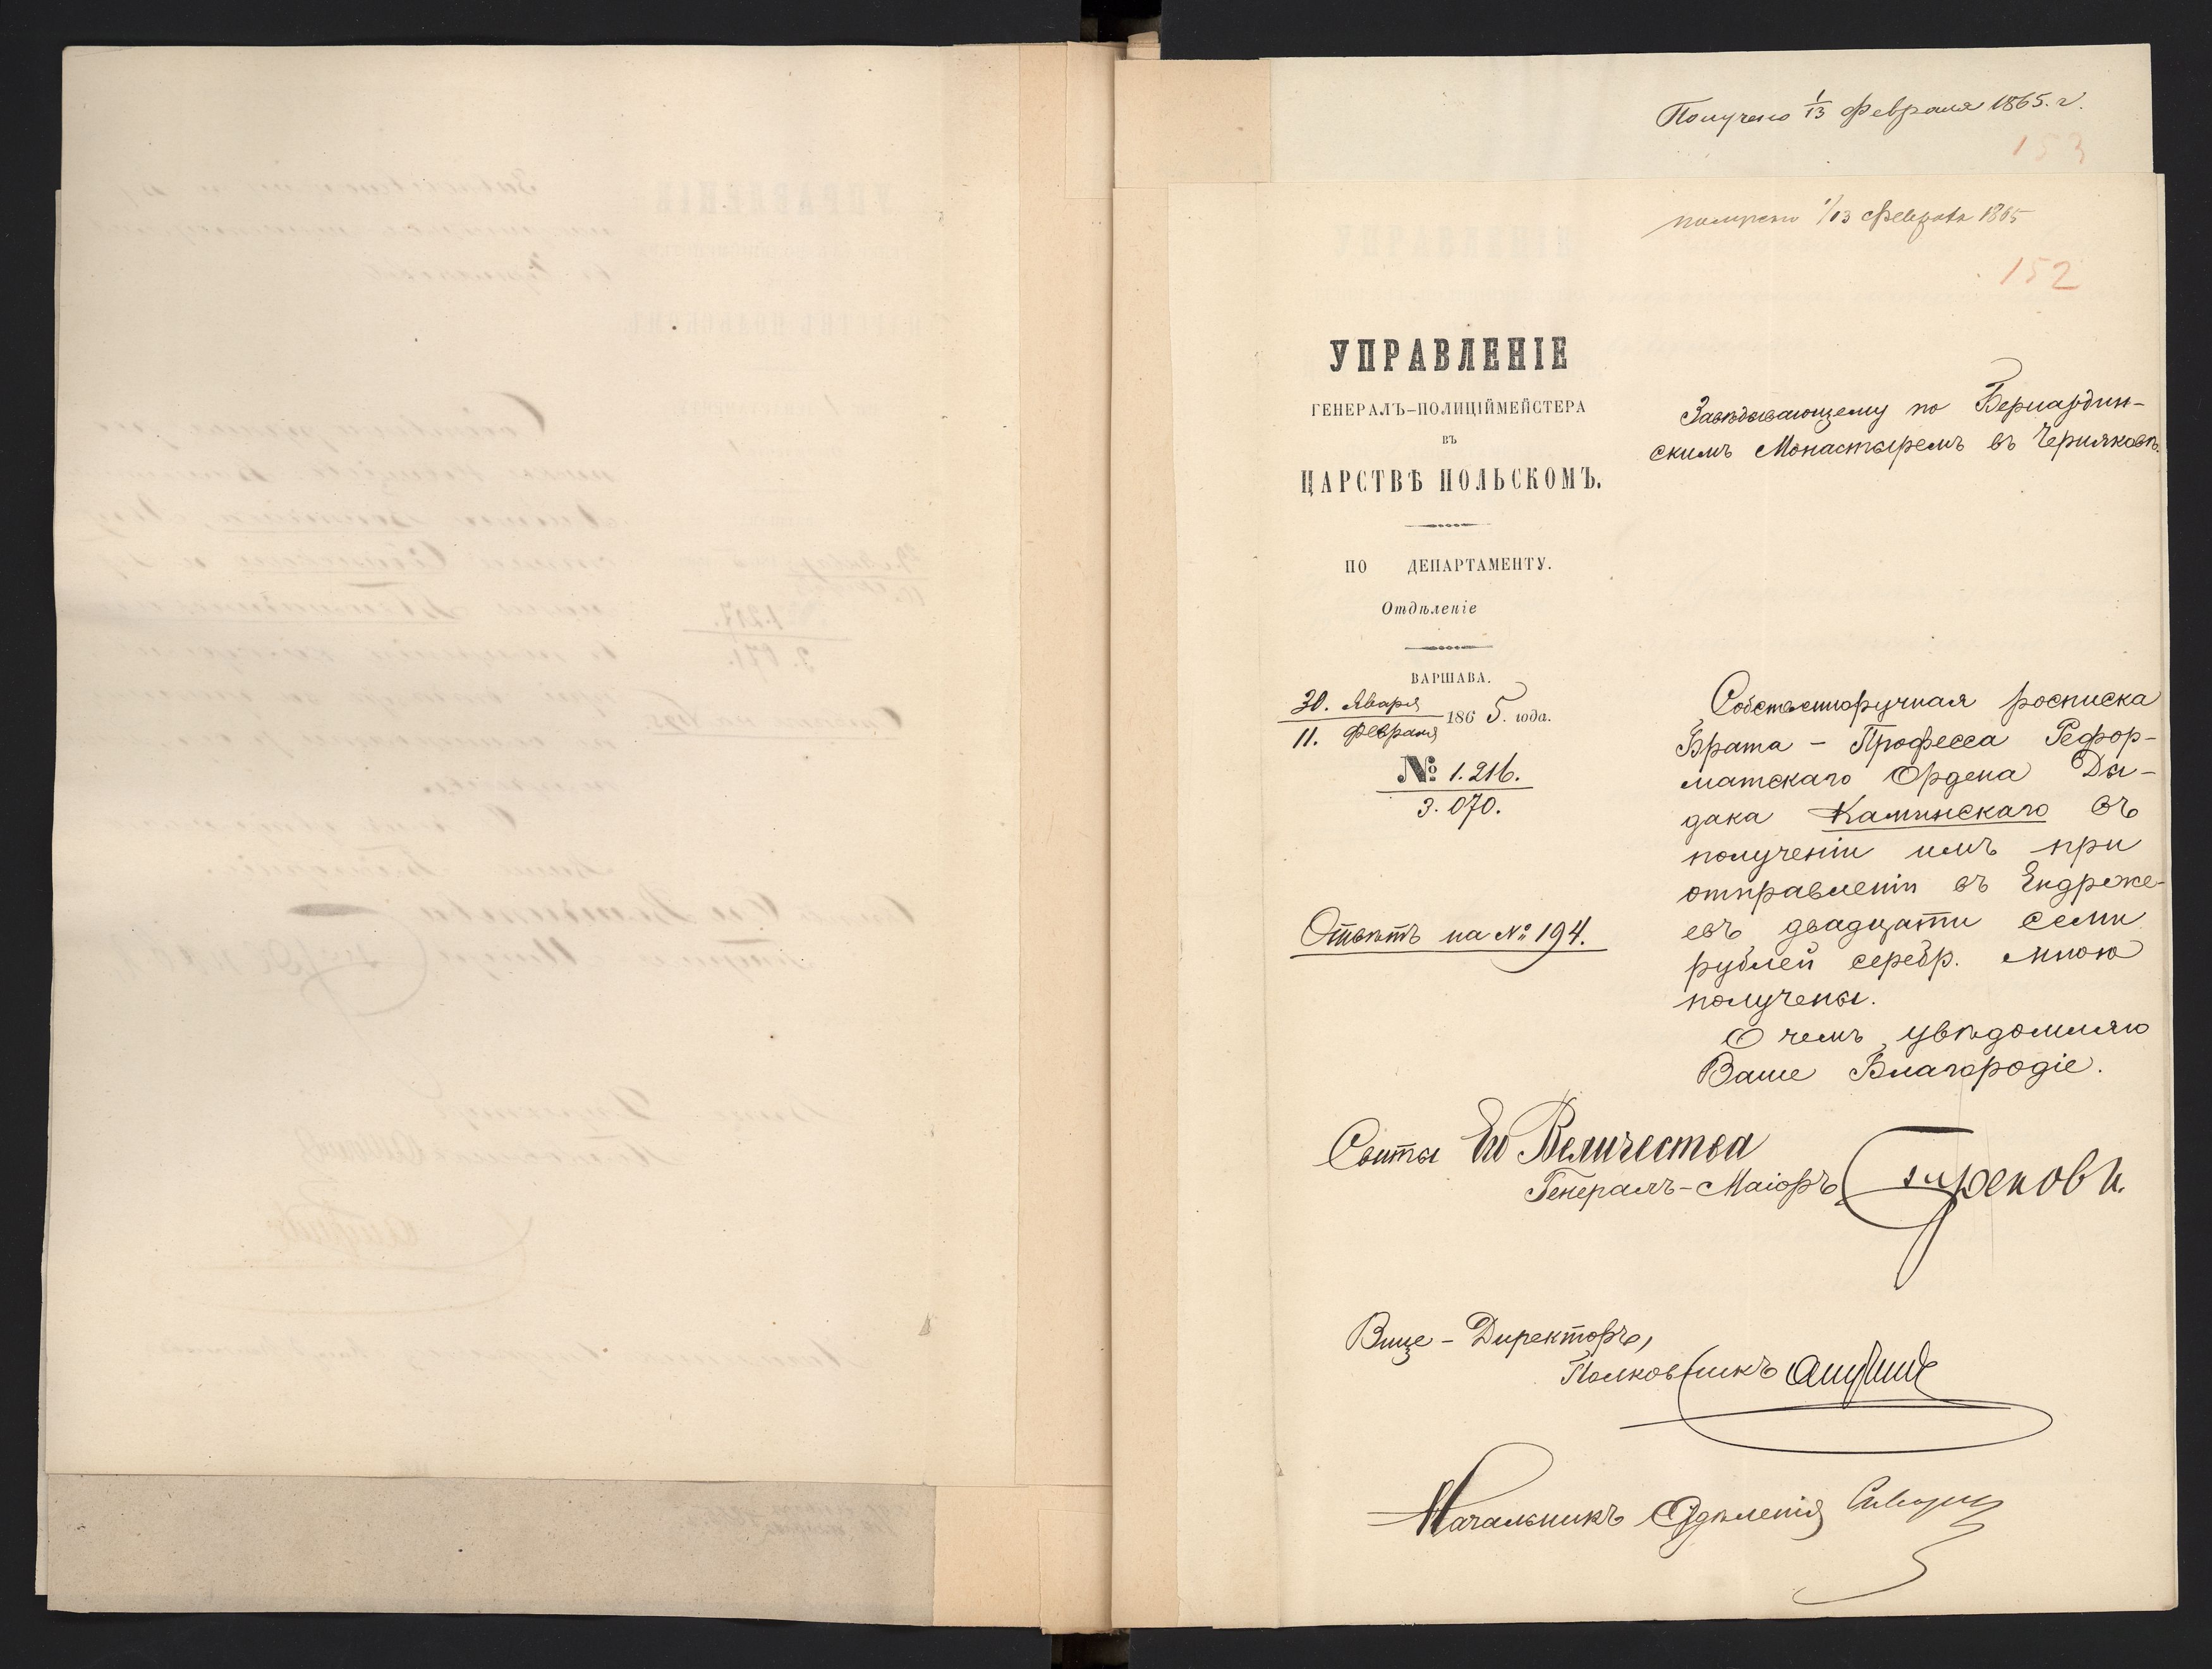 Получено 1/13 Февраля 1865. г.
153
получено 1/13 Февраля 1865
152
УПРАВЛЕНІЕ
ГЕНЕРАЛЪ-ПОЛИЦІЙМЕЙСТЕРА
ВЪ
ЦАРСТВѢ ПОЛЬСКОМЪ.
ПО ДЕПАРТАМЕНТУ.
Отдѣленіе
ВАРШАВА.
30. Января
11. Февраля
1865. года.
№ 1.216.
3.070.
Отвѣтъ на № 194.
Завѣдывающему по Бернардин-
скимъ Монастыремъ въ Черняковѣ.
Собственноручная росписка
Брата - Професса Рефор-
матскаго Ордена Ди-
дака Каминскаго въ
полученіи имъ при
отправленіи въ Ендрже-
евъ двадцати семи
рублей серебр. мною
получены.
О чемъ увѣдомляю
Ваше Благородіе.
Свиты Его Величества
Генералъ-Маіоръ Треповъ.
Вице-Директоръ,
Полковникъ
Начальникъ Отдѣленія